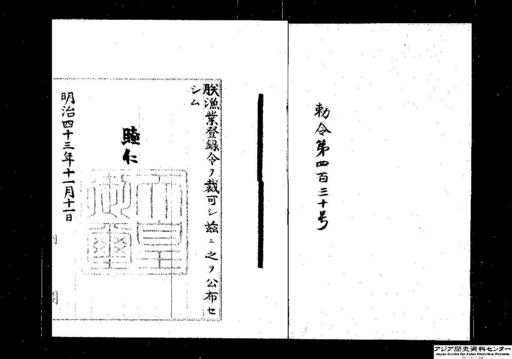 勅令第四百三十号
朕漁業登録令ヲ裁可シ茲ニ之ヲ公布セ
シム
睦仁
天皇
御璽
明治四十三年十一月十一日
アジア歴史資料センター
Japan Center for Asian Historical Records